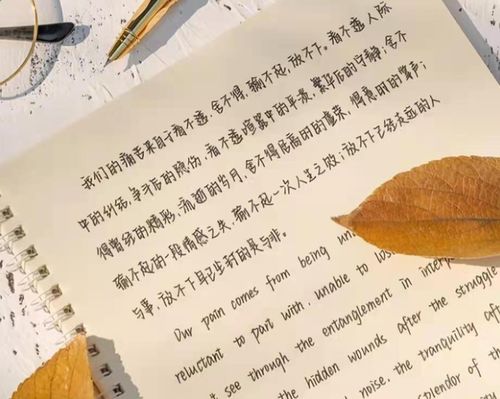 我们的痛苦来自于看不透、舍不得、输不起、放不下。看不透人际
中的纠结、争斗后的隐伤，看不透喧嚣中的平淡、繁华后的宁静；舍不
得曾经的精彩、流逝的岁月，舍不得居高时的虚荣、得意时的掌声；
输不起的一段情感之失，输不起一次人生之败；放不下已经走远的人
与事，放不下早已尘封的是与非。
Our pain comes from being
reluctant to part with, unable to
see through the entanglement in
the hidden wounds after the struggle
noise, the tranquility
splendor of